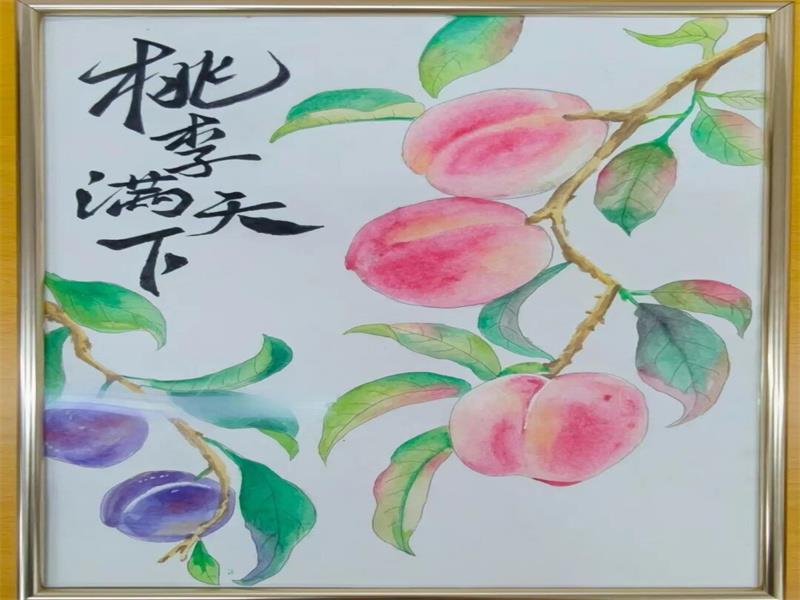 桃李满天下